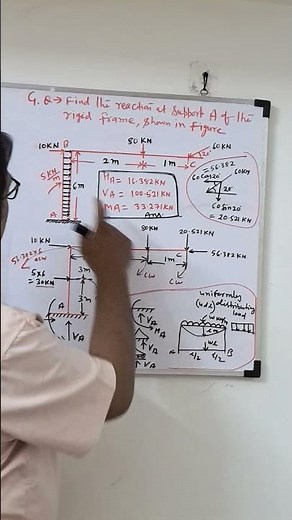 G.Q→ Find the reaction at Support A of the
rigid frame, shown in figure
10KN B
80 KN
60KN
20°
2m
1m
5KN/m
6m
A
HA = 16.382KN
VA = 100.521KN
MA = 33.271KN
Ans.
= 56.382
60cos20°
20°
60KN
60sin20°
= 20.521KN
10KN
80KN
20.521KN
56.382×6
ACW
C
1m
56.382KN
CW
CW
5×6
= 30KN
3m
3m
A
VA
VA
MA
VA
uniformly
(udl) distributing
load
wL
A
B
L/2
L/2